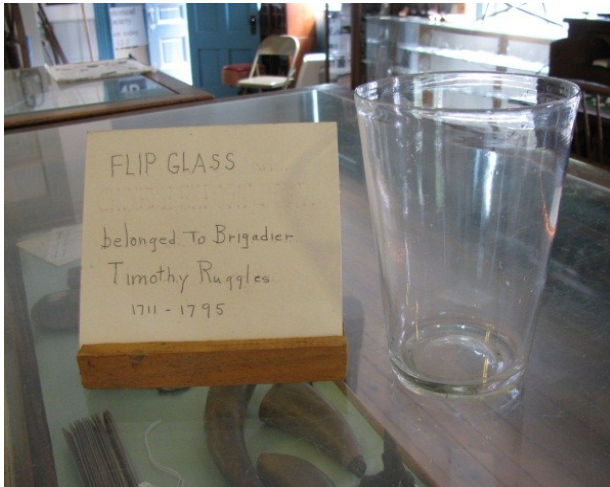 FLIP GLASS
belonged To Brigadier
Timothy Ruggles
1711 - 1795